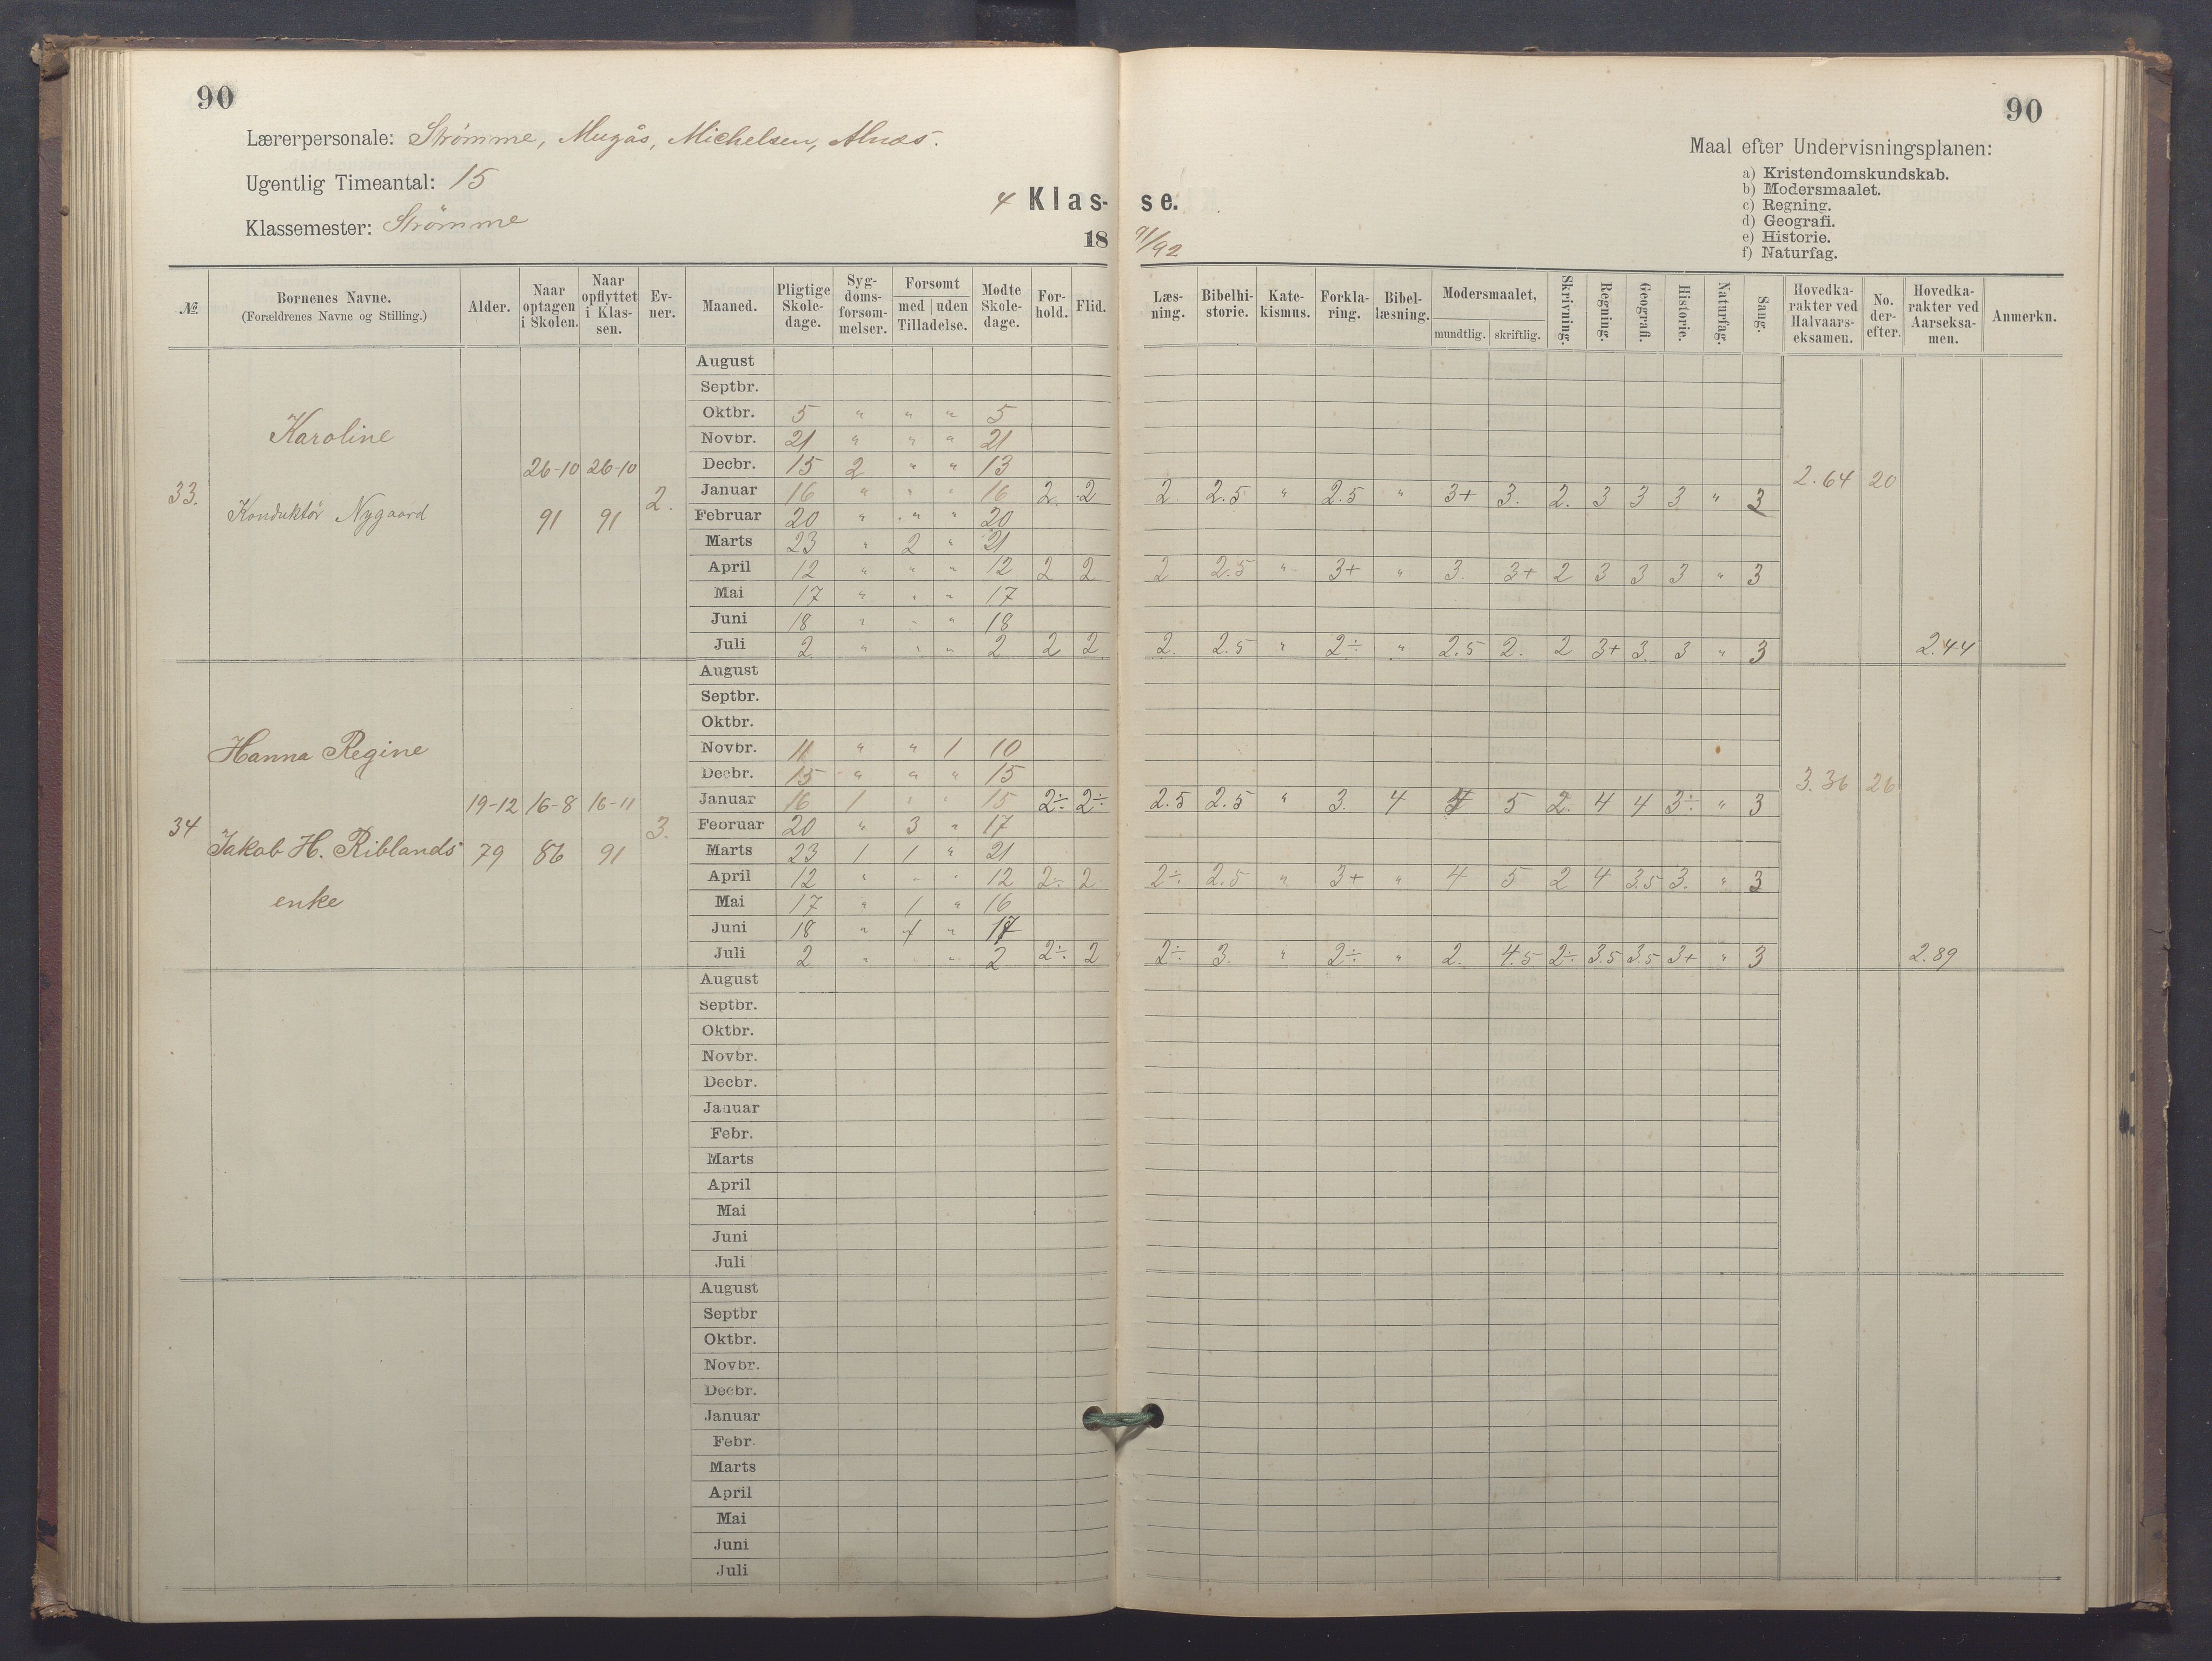 90
90
Lærerpersonale: Strømme, Mugås, Michelsen, Alnæs.
Ugentlig Timeantal: 15
Klassemester: Strømme
4 Klas- se.
18 91/92
Maal efter Undervisningsplanen:
a) Kristendomskundskab.
b) Modersmaalet.
c) Regning.
d) Geografi.
e) Historie.
f) Naturfag.
№ Børnenes Navne. (Forældrenes Navne og Stilling.) Alder. Naar optagen i Skolen. Naar opflyttet i Klassen. Evner. Maaned. Pligtige Skoledage. Sygdomsforsømmelser. Forsømt med uden Tilladelse. Mødte Skoledage. Forhold. Flid. Læsning. Bibelhistorie. Katekismus. Forklaring. Bibellæsning. Modersmaalet, mundtlig. skriftlig. Skrivning. Regning. Geografi. Historie. Naturfag. Sang. Hovedkarakter ved Halvaarseksamen. No. derefter. Hovedkarakter ved Aarseksamen. Anmerkn.
33. Karoline
Konduktör Nygaard
26-10 91 26-10 91 2.
August
Septbr.
Oktbr. 5 " " " 5
Novbr. 21 " " " 21
Decbr. 15 2 " " 13
Januar 16 " " " 16 2 2 2. 2.5 " 2.5 " 3+ 3. 2. 3 3 3 " 3 2.64 20
Februar 20 " " " 20
Marts 23 " 2 " 21
April 12 " " " 12 2 2 2 2.5 " 3+ " 3. 3+ 2 3 3 3 " 3
Mai 17 " " " 17
Juni 18 " " " 18
Juli 2 " " " 2 2 2 2. 2.5 " 2÷ " 2.5 2. 2 3+ 3. 3 " 3 2.44
34 Hanna Regine
Jakob H. Riblands
enke
19-12 79 16-8 86 16-11 91 3.
August
Septbr.
Oktbr.
Novbr. 11 " " 1 10
Decbr. 15 " " " 15
Januar 16 1 " " 15 2÷ 2÷ 2.5 2.5 " 3. 4 4 5 2. 4 4 3÷ " 3 3.36 26
Februar 20 " 3 " 17
Marts 23 1 1 " 21
April 12 " " " 12 2÷ 2 2÷ 2.5 " 3+ " 4 5 2 4 3.5 3. " 3
Mai 17 " 1 " 16
Juni 18 " 1 " 17
Juli 2 " " " 2 2÷ 2 2÷ 3. " 2÷ " 2. 4.5 2÷ 3.5 3.5 3+ " 3 2.89
August
Septbr.
Oktbr.
Novbr.
Decbr.
Januar
Febr.
Marts
April
Mai
Juni
Juli
August
Septbr
Oktbr.
Novbr.
Decbr.
Januar
Febr.
Marts
April
Mai
Juni
Juli